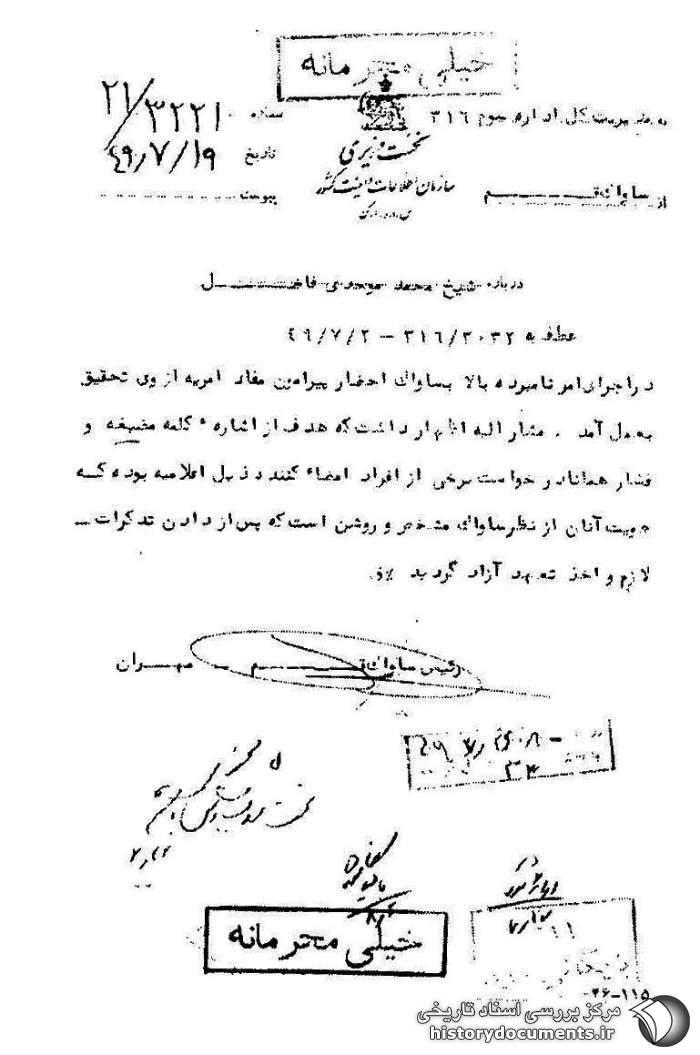 خیلی محرمانه
به مدیریت کل اداره سوم ۳۱۶
نخست وزیری
سازمان اطلاعات و امنیت کشور
از ساواک قـــــم
شماره ۲۱/۳۲۲۱
تاریخ ۴۹/۷/۱۹
پیوست
درباره شیخ محمد موحدی فاضـــــل
عطف به ۳۱۶/۳۰۳۲ – ۴۹/۷/۲
در اجرای امر نامبرده بالا بساواک احضار پیرامون مفاد امریه از وی تحقیق
بعمل آمد . مشار الیه اظهار داشت که هدف از اشاره کلمه مضیقه و
فشار همانا درخواست برخی از افراد امضاء کننده ذیل اعلامیه بوده کــه
هویت آنان از نظر ساواک مشخص و روشن است که پس از دادن تذکرات ــ
لازم و اخذ تعهد آزاد گردید
رئیس ساواک قـــــم – مهـــران
۳۴
خیلی محرمانه
۱۱
۳۶-۱۱۵
مرکز بررسی اسناد تاریخی
historydocuments.ir